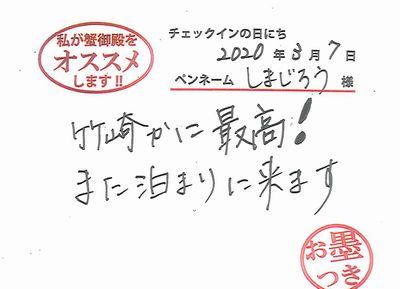 私が蟹御殿を
オススメ
します!!
チェックインの日にち
2020年3月7日
ペンネーム しまじろう 様
竹崎かに最高!
また泊まりに来ます
お墨
つき